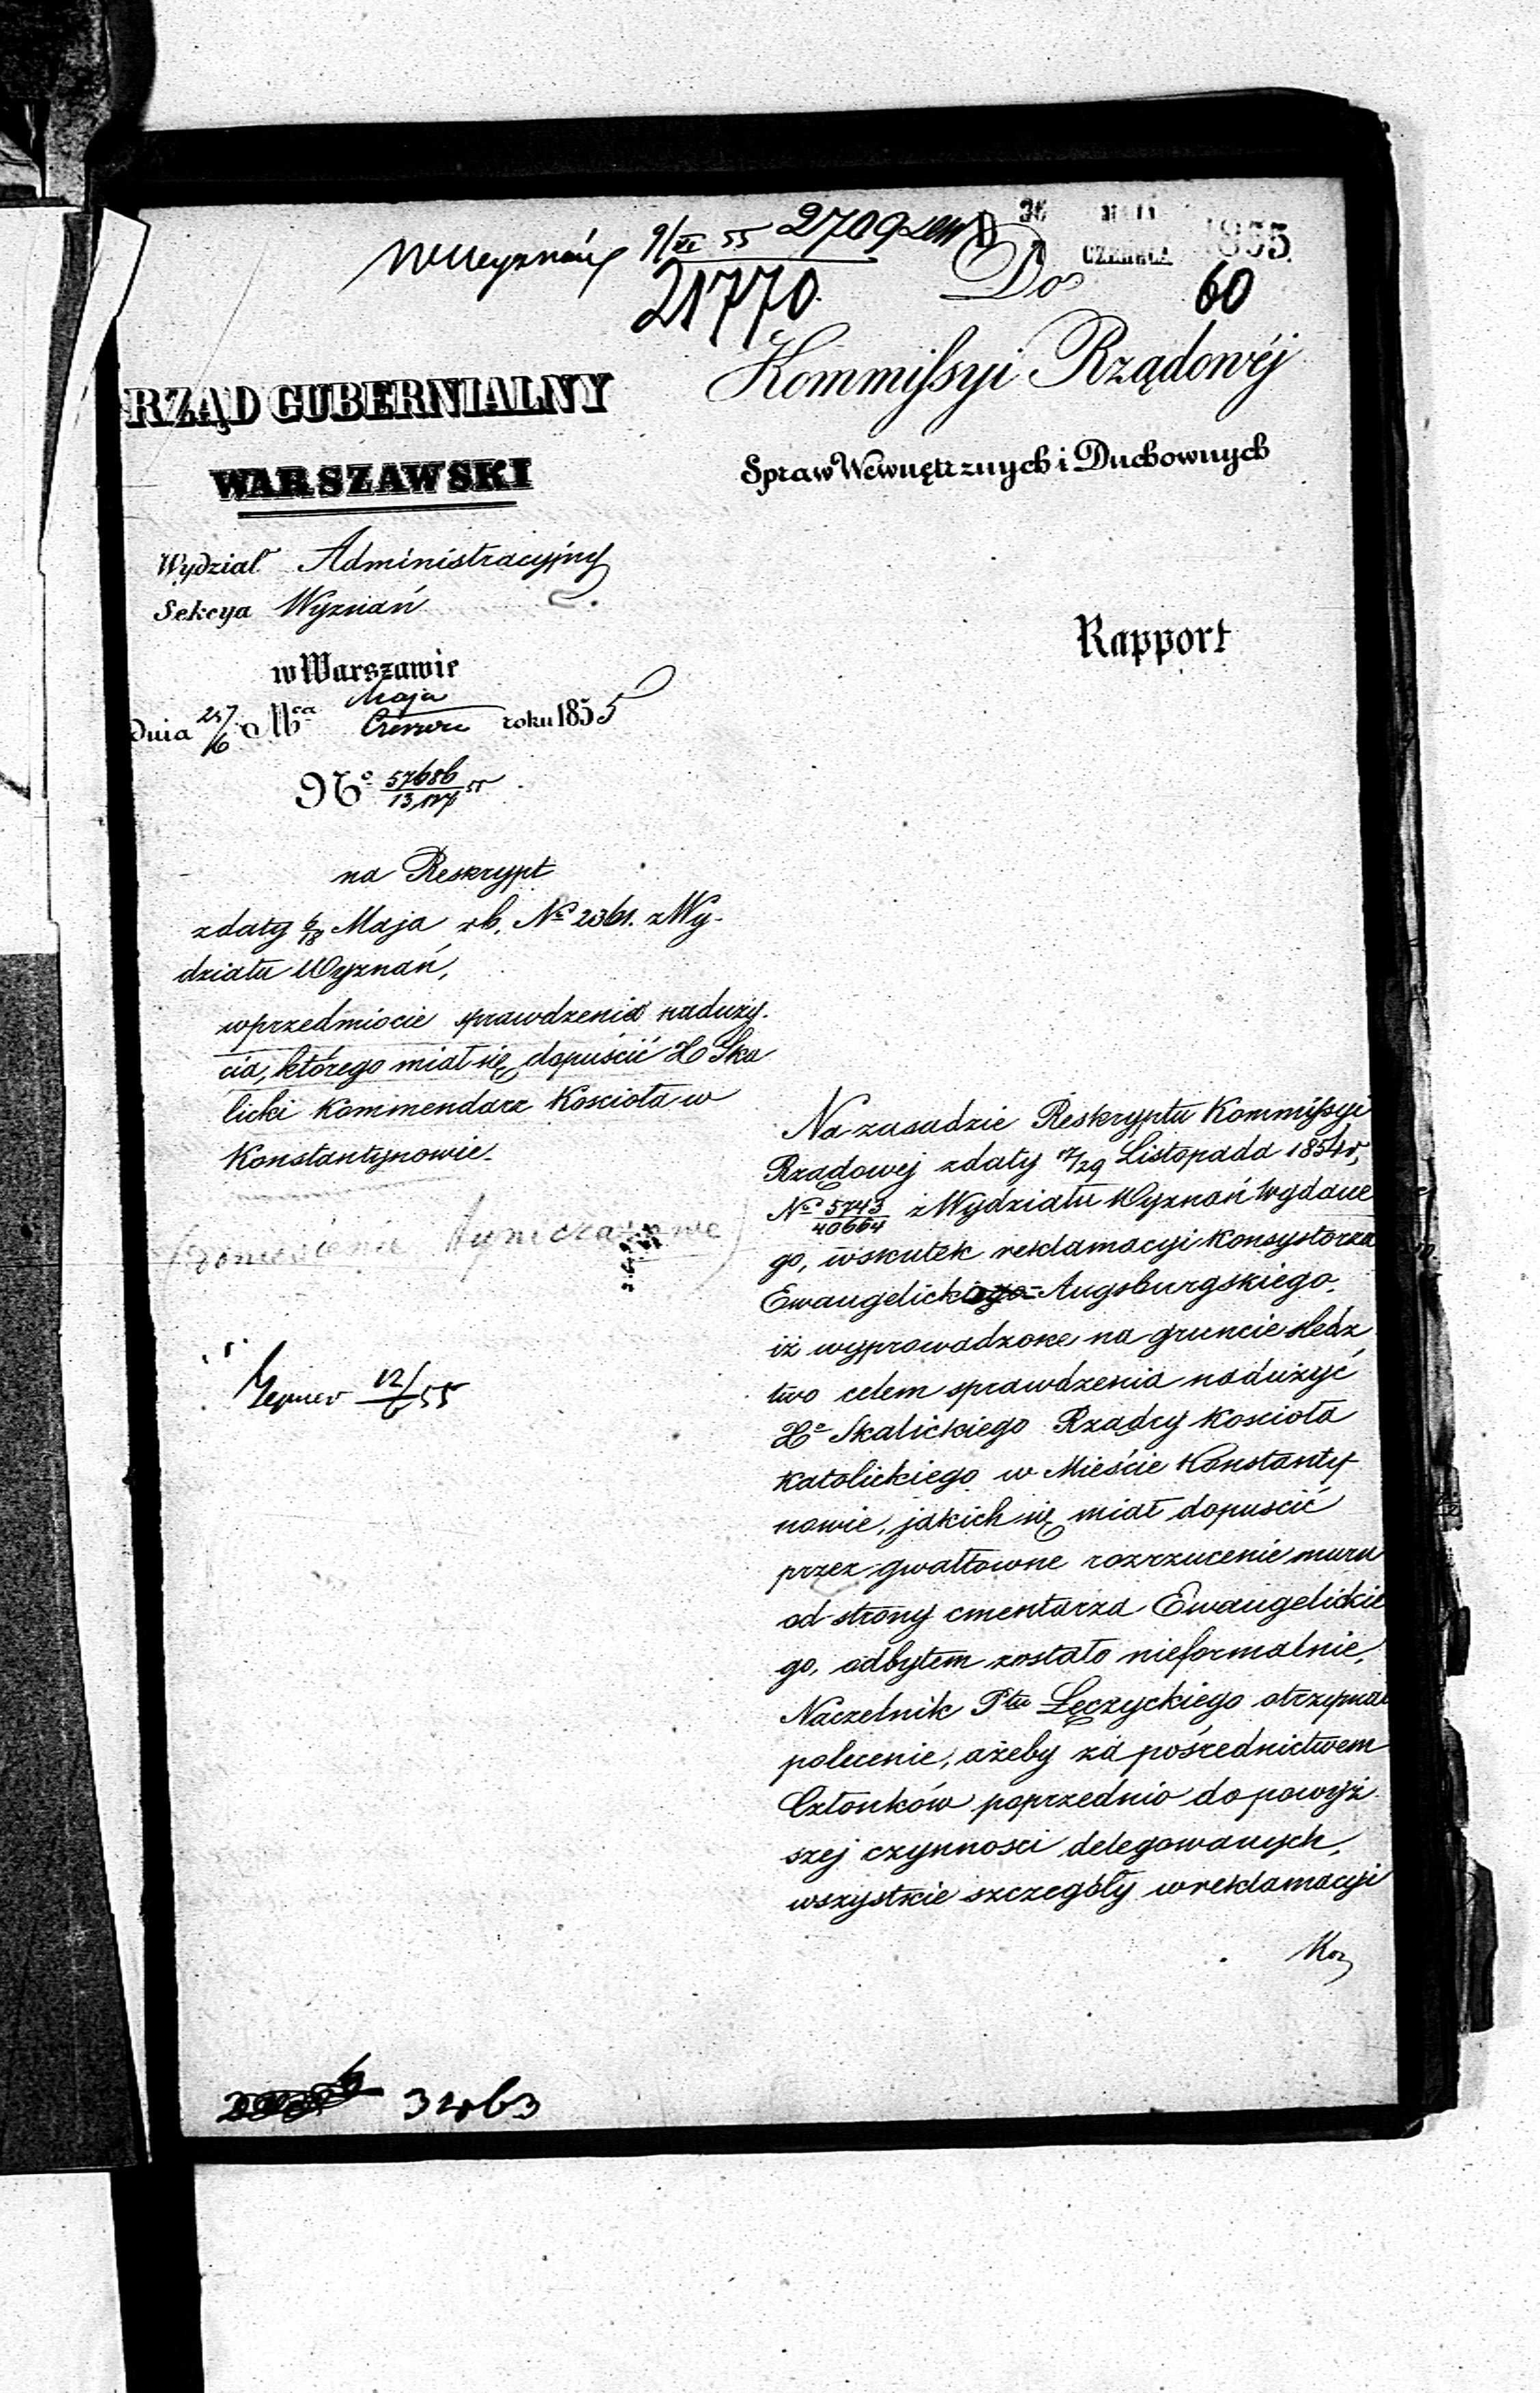 9/VI 55 2709
36 MAJA
CZERWCA 1855.
21770.
Do
60
Kommissyi Rządowéj
Spraw Wewnętrznych i Duchownych
RZĄD GUBERNIALNY
WARSZAWSKI
Wydział Administracyjny
Sekcya Wyznań
w Warszawie
Dnia 25/6 Mca Maja/Czerwca roku 1855
No 57686/13,127 55
Rapport
na Reskrypt
z daty 6/18 Maja r.b. No 2361. z Wy-
działu Wyznań,
w przedmiocie sprawdzenia naduży-
cia, którego miał się dopuścić X Ska
licki Kommendarz Kościoła w
Konstantynowie.
12/6 55
Na zasadzie Reskryptu Kommissyi
Rządowej z daty 17/29 Listopada 1854 r,
No 5743/40664 z Wydziału Wyznań wydane
go, wskutek reklamacyi Konsystorza
Ewangelicko-Augsburgskiego,
iż wyprowadzone na gruncie śledz
two celem sprawdzenia nadużyć
Xa Skalickiego Rządcy Kościoła
Katolickiego w Mieście Konstanty
nowie, jakich się miał dopuścić
przez gwałtowne rozrzucenie muru
od strony cmentarza Ewangelickie
go, odbytem zostało nieformalnie,
Naczelnik Ptu Łęczyckiego otrzymał
polecenie, ażeby za pośrednictwem
Członków poprzednio do powyż
szej czynności delegowanych,
wszystkie szczegóły w reklamacyi
Kon
32463